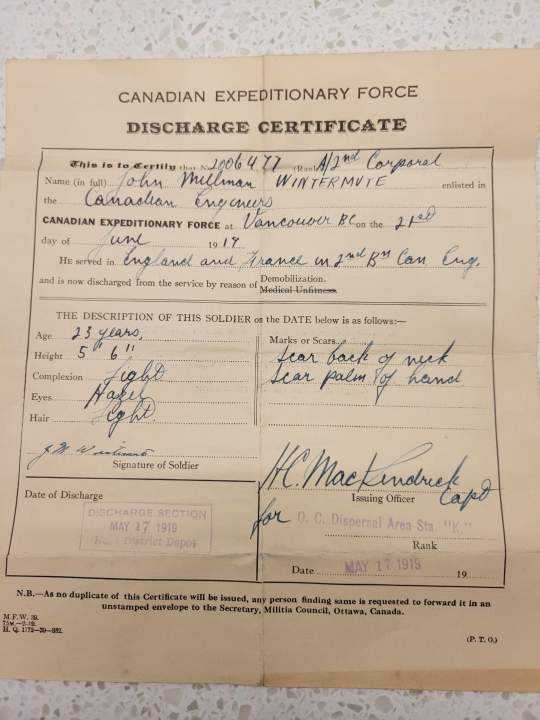 CANADIAN EXPEDITIONARY FORCE
DISCHARGE CERTIFICATE
This is to Certify that No 2006477 (Rank A/2nd Corporal
Name (in full) John Millman WINTERMUTE enlisted in
the Canadian Engineers
CANADIAN EXPEDITIONARY FORCE at Vancouver BC on the 21st
day of June 1917.
HE served in England and France in 2nd Bn Can Eng.
and is now discharged from the service by reason of Demobilization.
Medical Unfitness.
THE DESCRIPTION OF THIS SOLDIER on the DATE below is as follows:—
Age 23 years.
Height 5' 6"
Complexion Light
Eyes Hazel
Hair Light.
Marks or Scars
Scar back of neck
Scar palm of hand
Signature of Soldier
H.C. MacKendrick Capt
Issuing Officer
for O. C. Dispersal Area Sta. "K."
Rank
Date of Discharge
DISCHARGE SECTION
MAY 17 1919
District Depot
Date MAY 17 1919 19
N.B.—As no duplicate of this Certificate will be issued, any person finding same is requested to forward it in an
unstamped envelope to the Secretary, Militia Council, Ottawa, Canada.
M.F.W. 39.
75M.—2-19.
H. Q. 1772-39-882.
(P. T. O.)